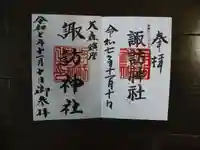 奉拝
諏訪神社
令和七年十一月十日
大森鎮座
諏訪神社
令和七年十一月十日御参拝